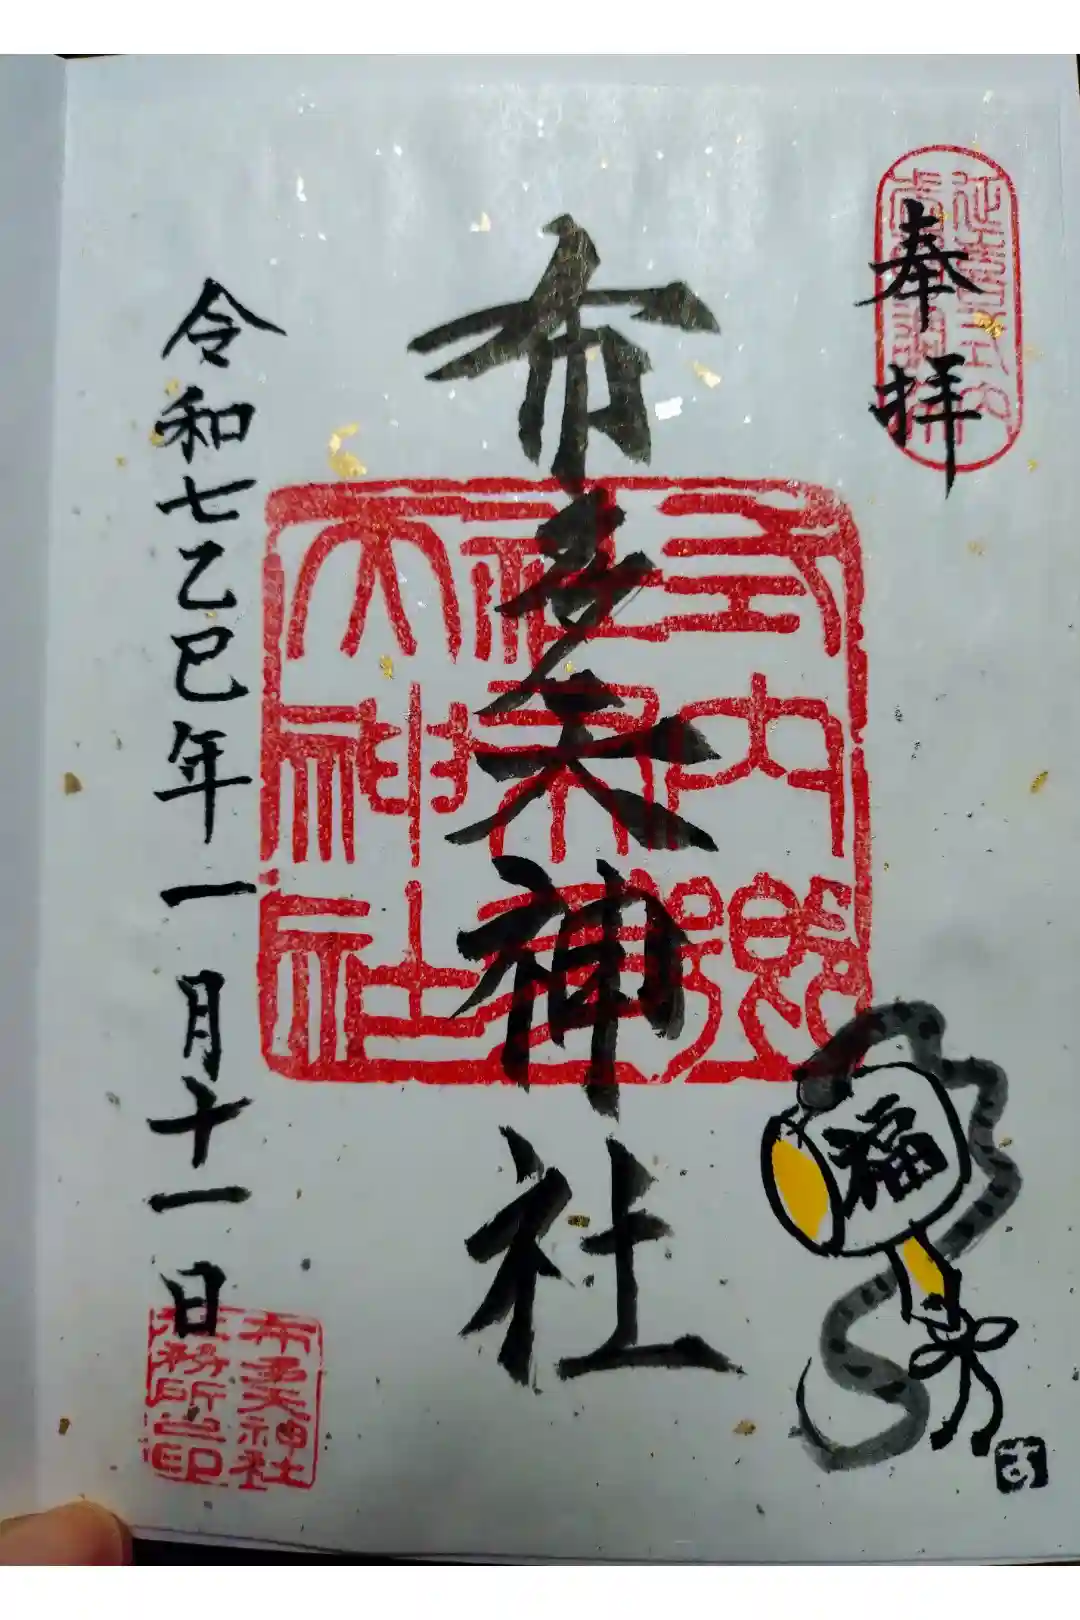 奉拝
延喜式内
布多天神社
式内郷
社布多
天神社
福
令和七乙巳年一月十一日
布多天神社
社務所之印